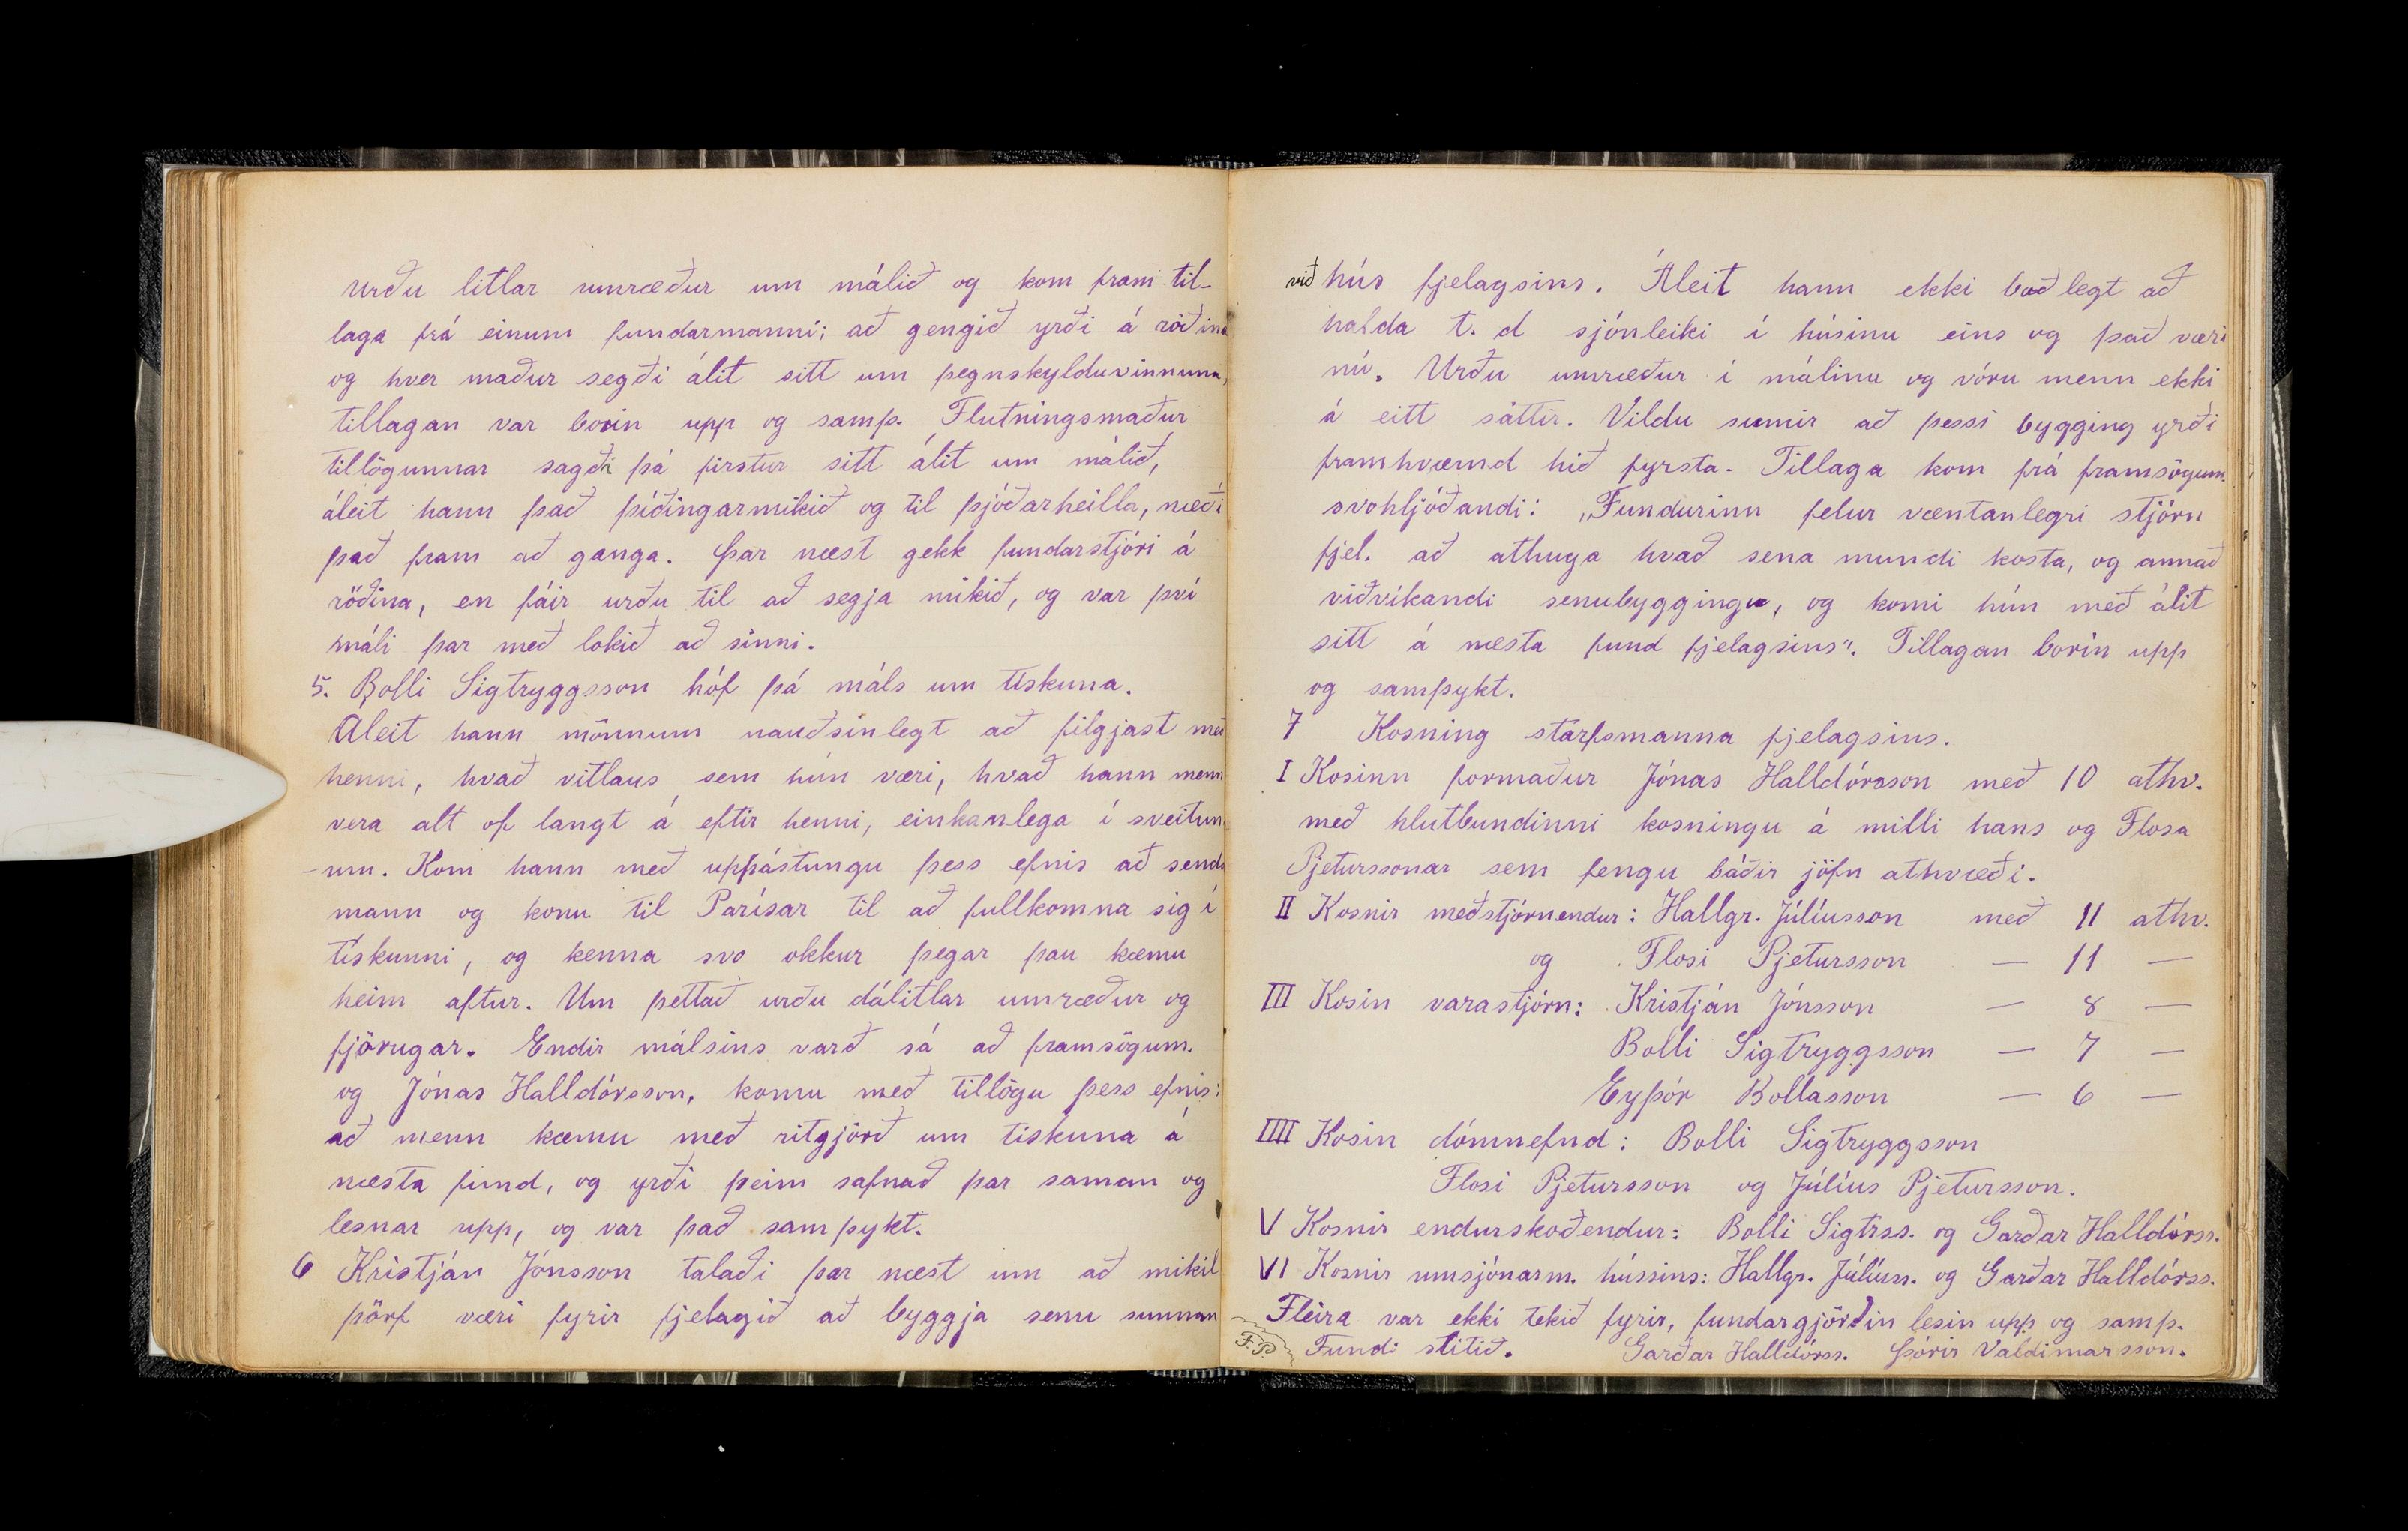 urðu litlar umræður um málið og kom fram til-
laga frá einum fundarmanni; að gengið yrði á röðina
og hver maður segði álit sitt um þegnskylduvinnuna,
tillagan var borin upp og samþ. Flutningsmaður
tillögunnar sagði þá firstur sitt álit um málið,
áleit hann það þíðingarmikið og til þjóðarheilla, næði
það fram að ganga. Þar næst gekk fundarstjóri á
röðina, en fáir urðu til að segja mikið, og var því
máli þar með lokið að sinni.
5. Bolli Sigtryggsson hóf þá máls um tískuna.
Áleit hann mönnum nauðsinlegt að filgjast með
henni, hvað vitlaus sem hún væri, hvað hann menn
vera alt of langt á eftir henni, einkanlega í sveitun
-um. Kom hann með uppástungu þess efnis að senda
mann og konu til Parísar til að fullkomna sig í
tískunni, og kenna svo okkur þegar þau kæmu
heim aftur. Um þettað urðu dálitlar umræður og
fjörugar. Endir málsins varð sá að framsögum.
og Jónas Halldórsson, komu með tillögu þess efnis:
að menn kæmu með ritgjörð um tískuna á
næsta fund, og yrði þeim safnað þar saman og
lesnar upp, og var það samþykt.
6 Kristján Jónsson talaði þar næst um að mikil
þörf væri fyrir fjelagið að byggja senu sunnan
við hús fjelagsins. Áleit hann ekki boðlegt að
halda t. d sjónleiki í húsinu eins og það væri
nú. Urðu umræður í málinu og vóru menn ekki
á eitt sáttir. Vildu sumir að þessi bygging yrði
framhvæmd hið fyrsta. Tillaga kom frá framsögum.
svohljóðandi: „Fundurinn felur væntanlegri stjórn
fjel. að athuga hvað sena mundi kosta, og annað
viðvíkandi senubyggingu, og komi hún með álit
sitt á næsta fund fjelagsins". Tillagan borin upp
og samþykt.
7 Kosning starfsmanna fjelagsins.
I Kosinn formaður Jónas Halldórsson með 10 athv.
með hlutbundinni kosningu á milli hans og Flosa
Pjeturssonar sem fengu báðir jöfn athvæði.
II Kosnir meðstjórnendur: Hallgr. Júlíusson með 11 athv.
og Flosi Pjetursson — 11 —
III Kosin varastjórn: Kristján Jónsson — 8 —
Bolli Sigtryggsson — 7 —
Eyþór Bollasson — 6 —
IIII Kosin dómnefnd: Bolli Sigtryggsson
Flosi Pjetursson og Júlíus Pjetursson.
V Kosnir endurskoðendur: Bolli Sigtrss. og Garðar Halldórss.
VI Kosnir umsjónarm. hússins: Hallgr. Júlíuss. og Garðar Halldórss.
Fleira var ekki tekið fyrir, fundargjörðin lesin upp og samþ.
F.P. Fundi slitið. Garðar Halldórss. Þórir Valdimarsson.